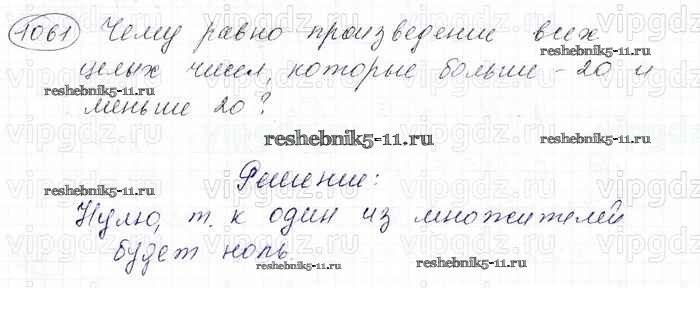 1061 Чему равно произведение всех
целых чисел, которые больше -20 и
меньше 20?
Решение:
Нулю, т. к один из множителей
будет ноль.
reshebnik5-11.ru
reshebnik5-11.ru
reshebnik5-11.ru
reshebnik5-11.ru
reshebnik5-11.ru
reshebnik5-11.ru
reshebnik5-11.ru
vipgdz.ru